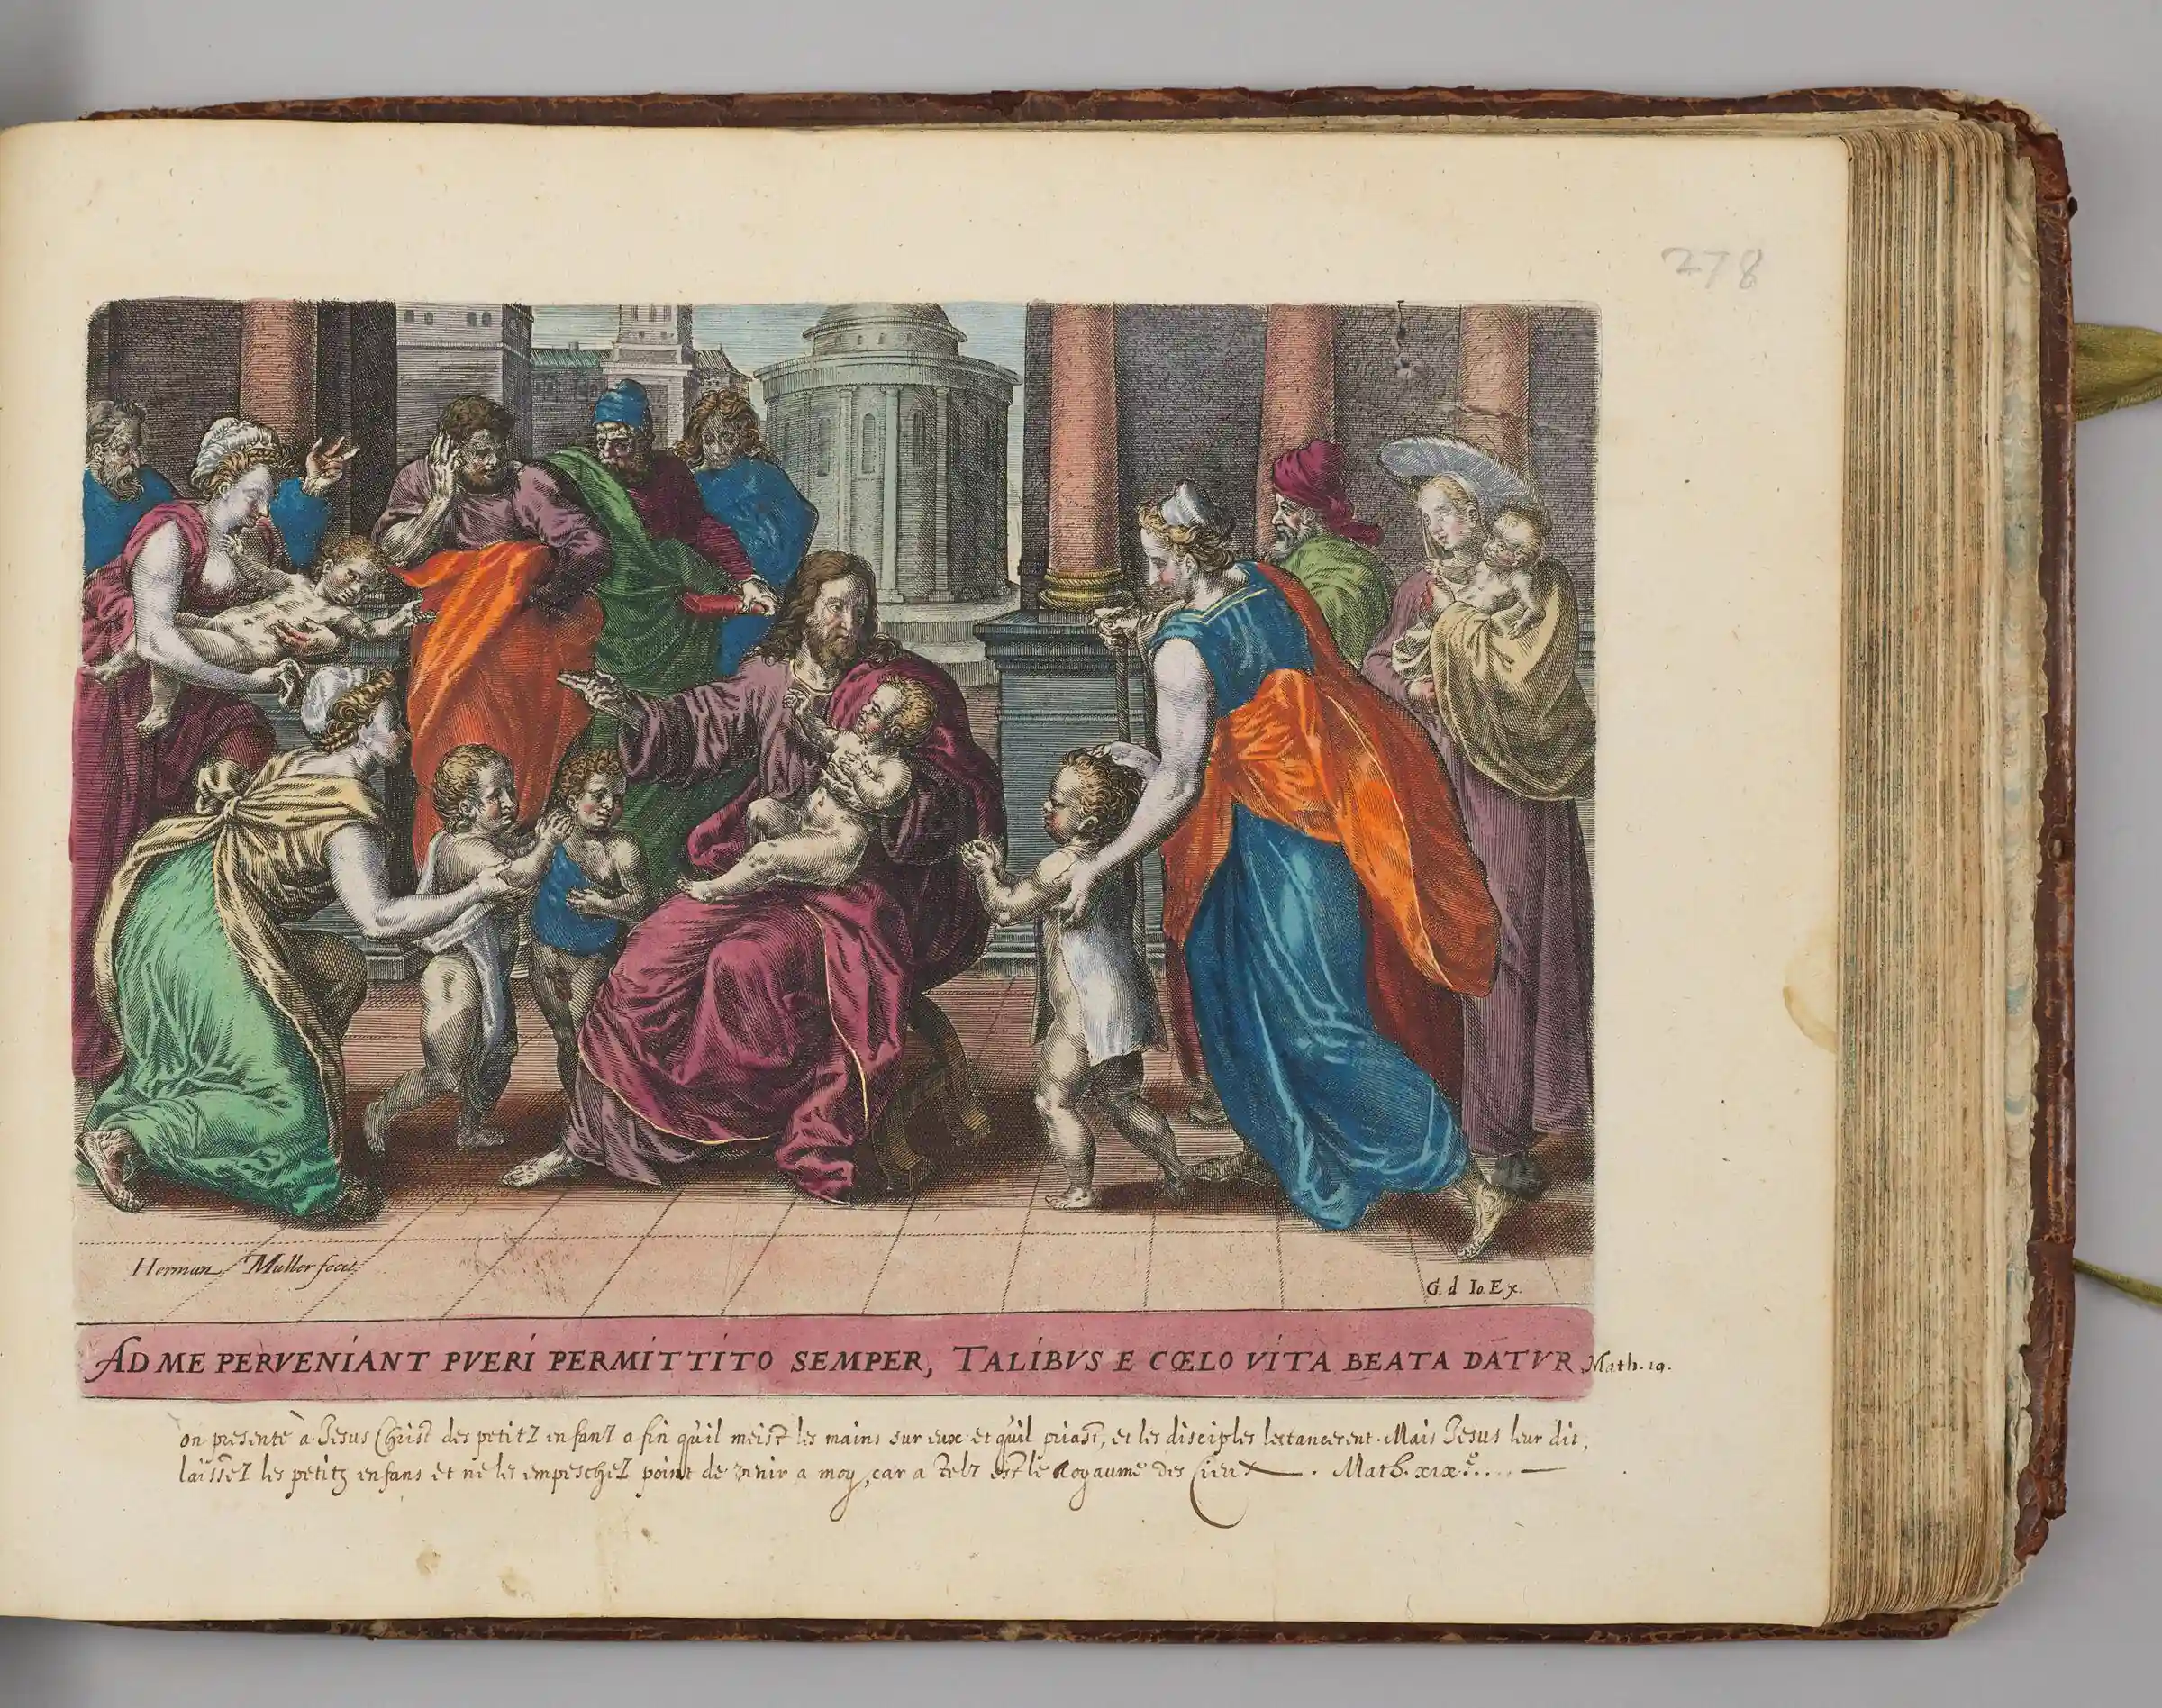 278
Herman Muller fecit
G. d Io. Ex.
AD ME PERVENIANT PVERI PERMITTITO SEMPER, TALIBVS E CŒLO VITA BEATA DATVR Math. 19.
on presente à Jesus Christ des petitz enfanz afin qu'il meist les mains sur eux et qu'il priast, et les disciples les tancerent. Mais Jesus leur dit,
laissez les petitz enfans et ne les empeschez point de venir a moy, car a telz est le Royaume des Cieux. Math. xix.e